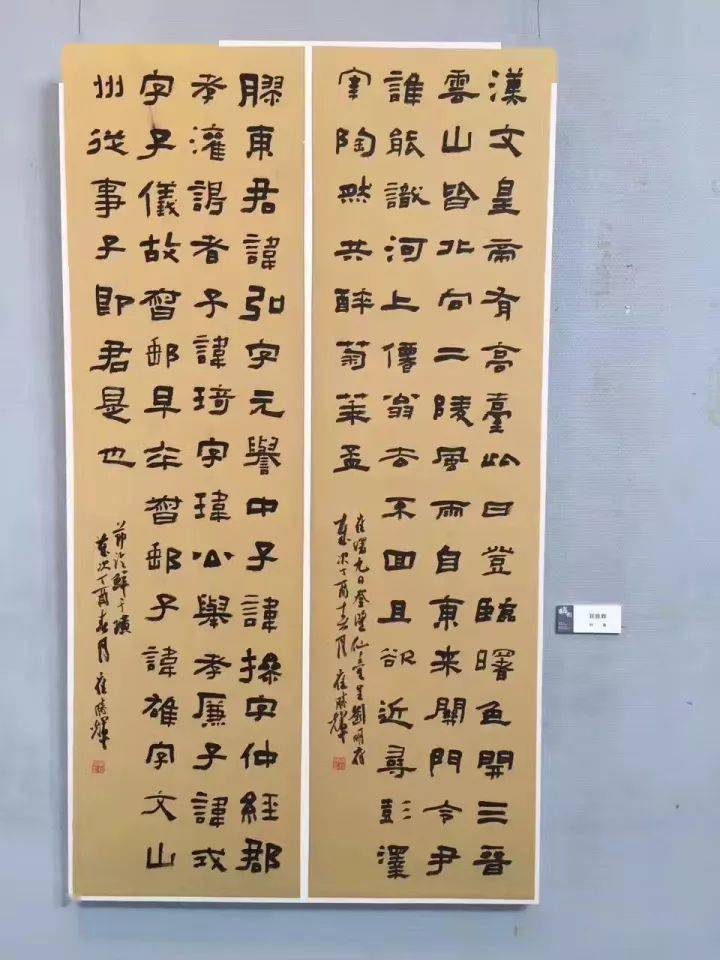 漢文皇帝有高臺此日登臨曙色開三晉
雲山皆北向二陵風雨自東来關門令尹
誰能識河上僊翁去不回且欲近尋彭澤
宰陶然共醉菊華盃
崔曙九日登望仙臺呈劉明府
歲次丁酉 月 崔 輝
膠東君諱弘字元譽中子諱操字仲經郡
孝灌謁者子諱琦字瑋公舉孝廉子諱或
字子儀故督郵早卒督郵子諱雄字文山
州從事子即君是也
節臨鮮于璜
歲次丁酉春月 崔 輝